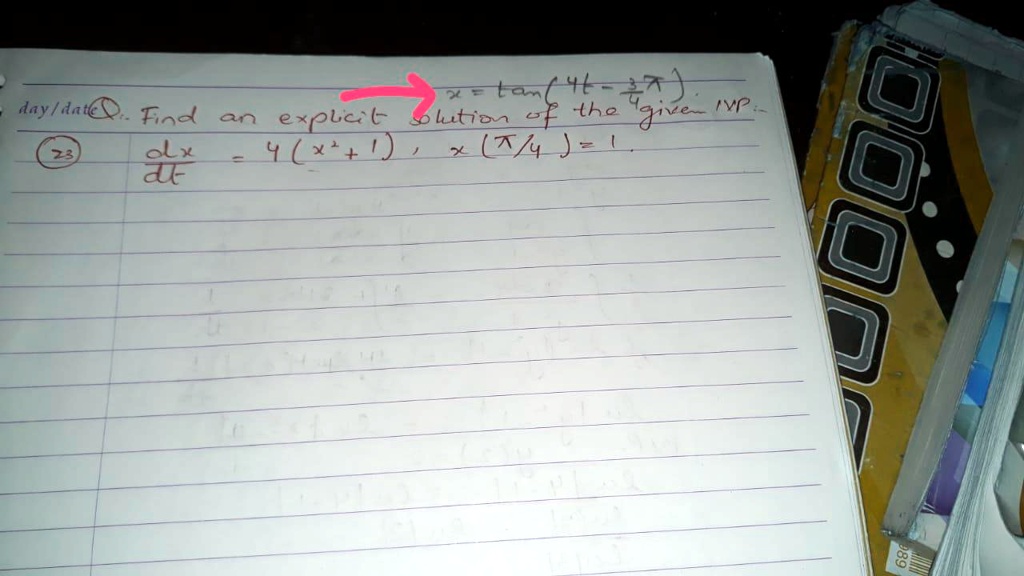 x = tan(4t - 3/4 π)
day/date Q.. Find an explicit solution of the given IVP:-
(23) dx/dt = 4(x² + 1), x(π/4) = 1.